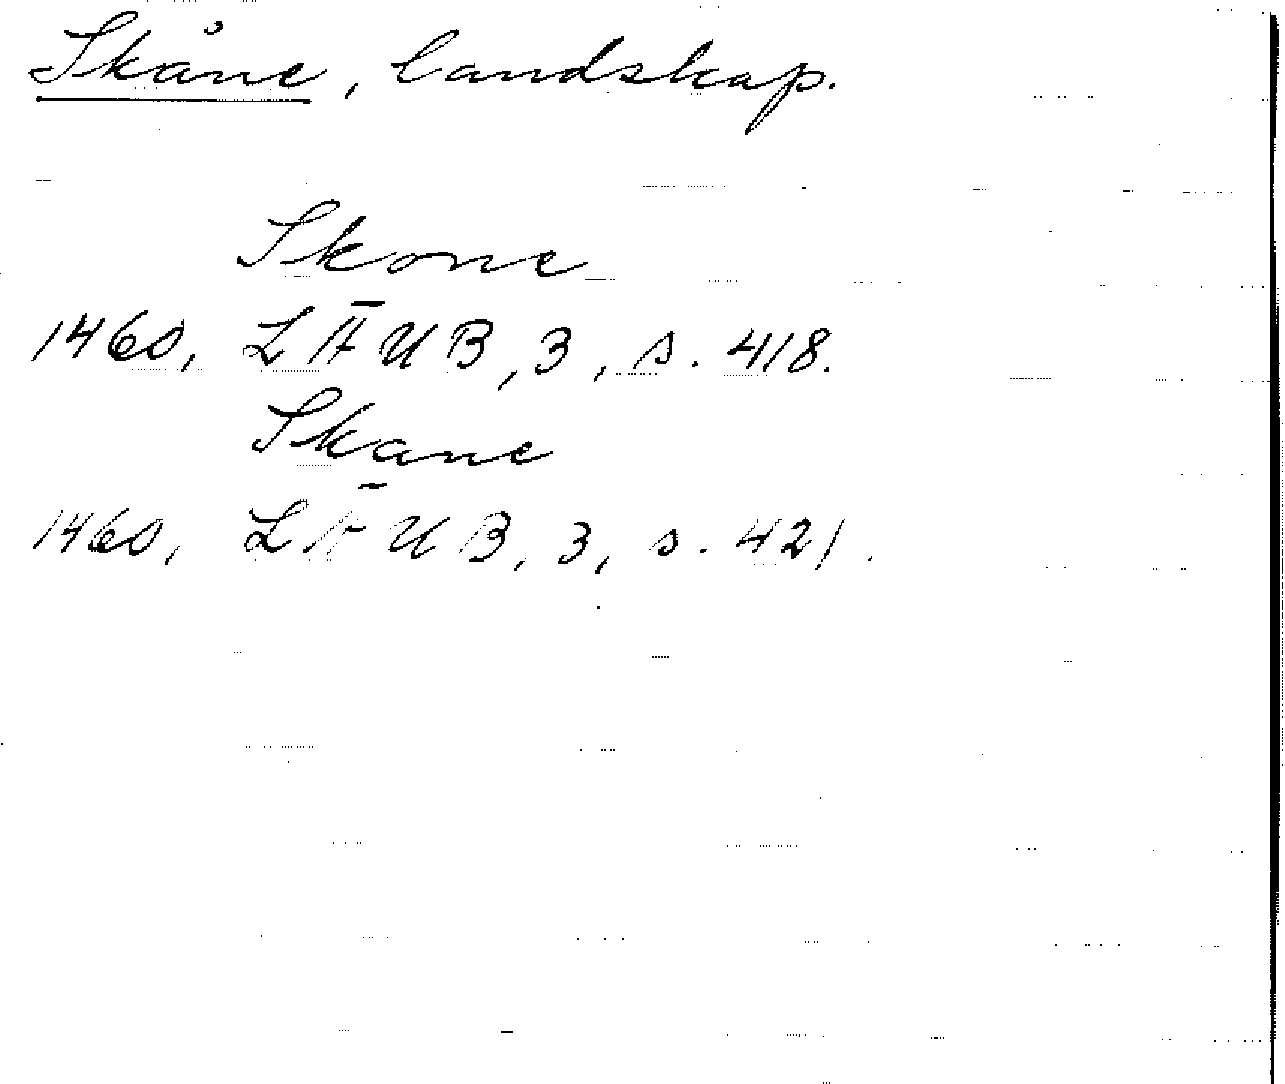 Skåne, landskap.
Skone
1460, LÄUB, 3, s. 418.
Skane
1460, LÄUB, 3, s. 421.